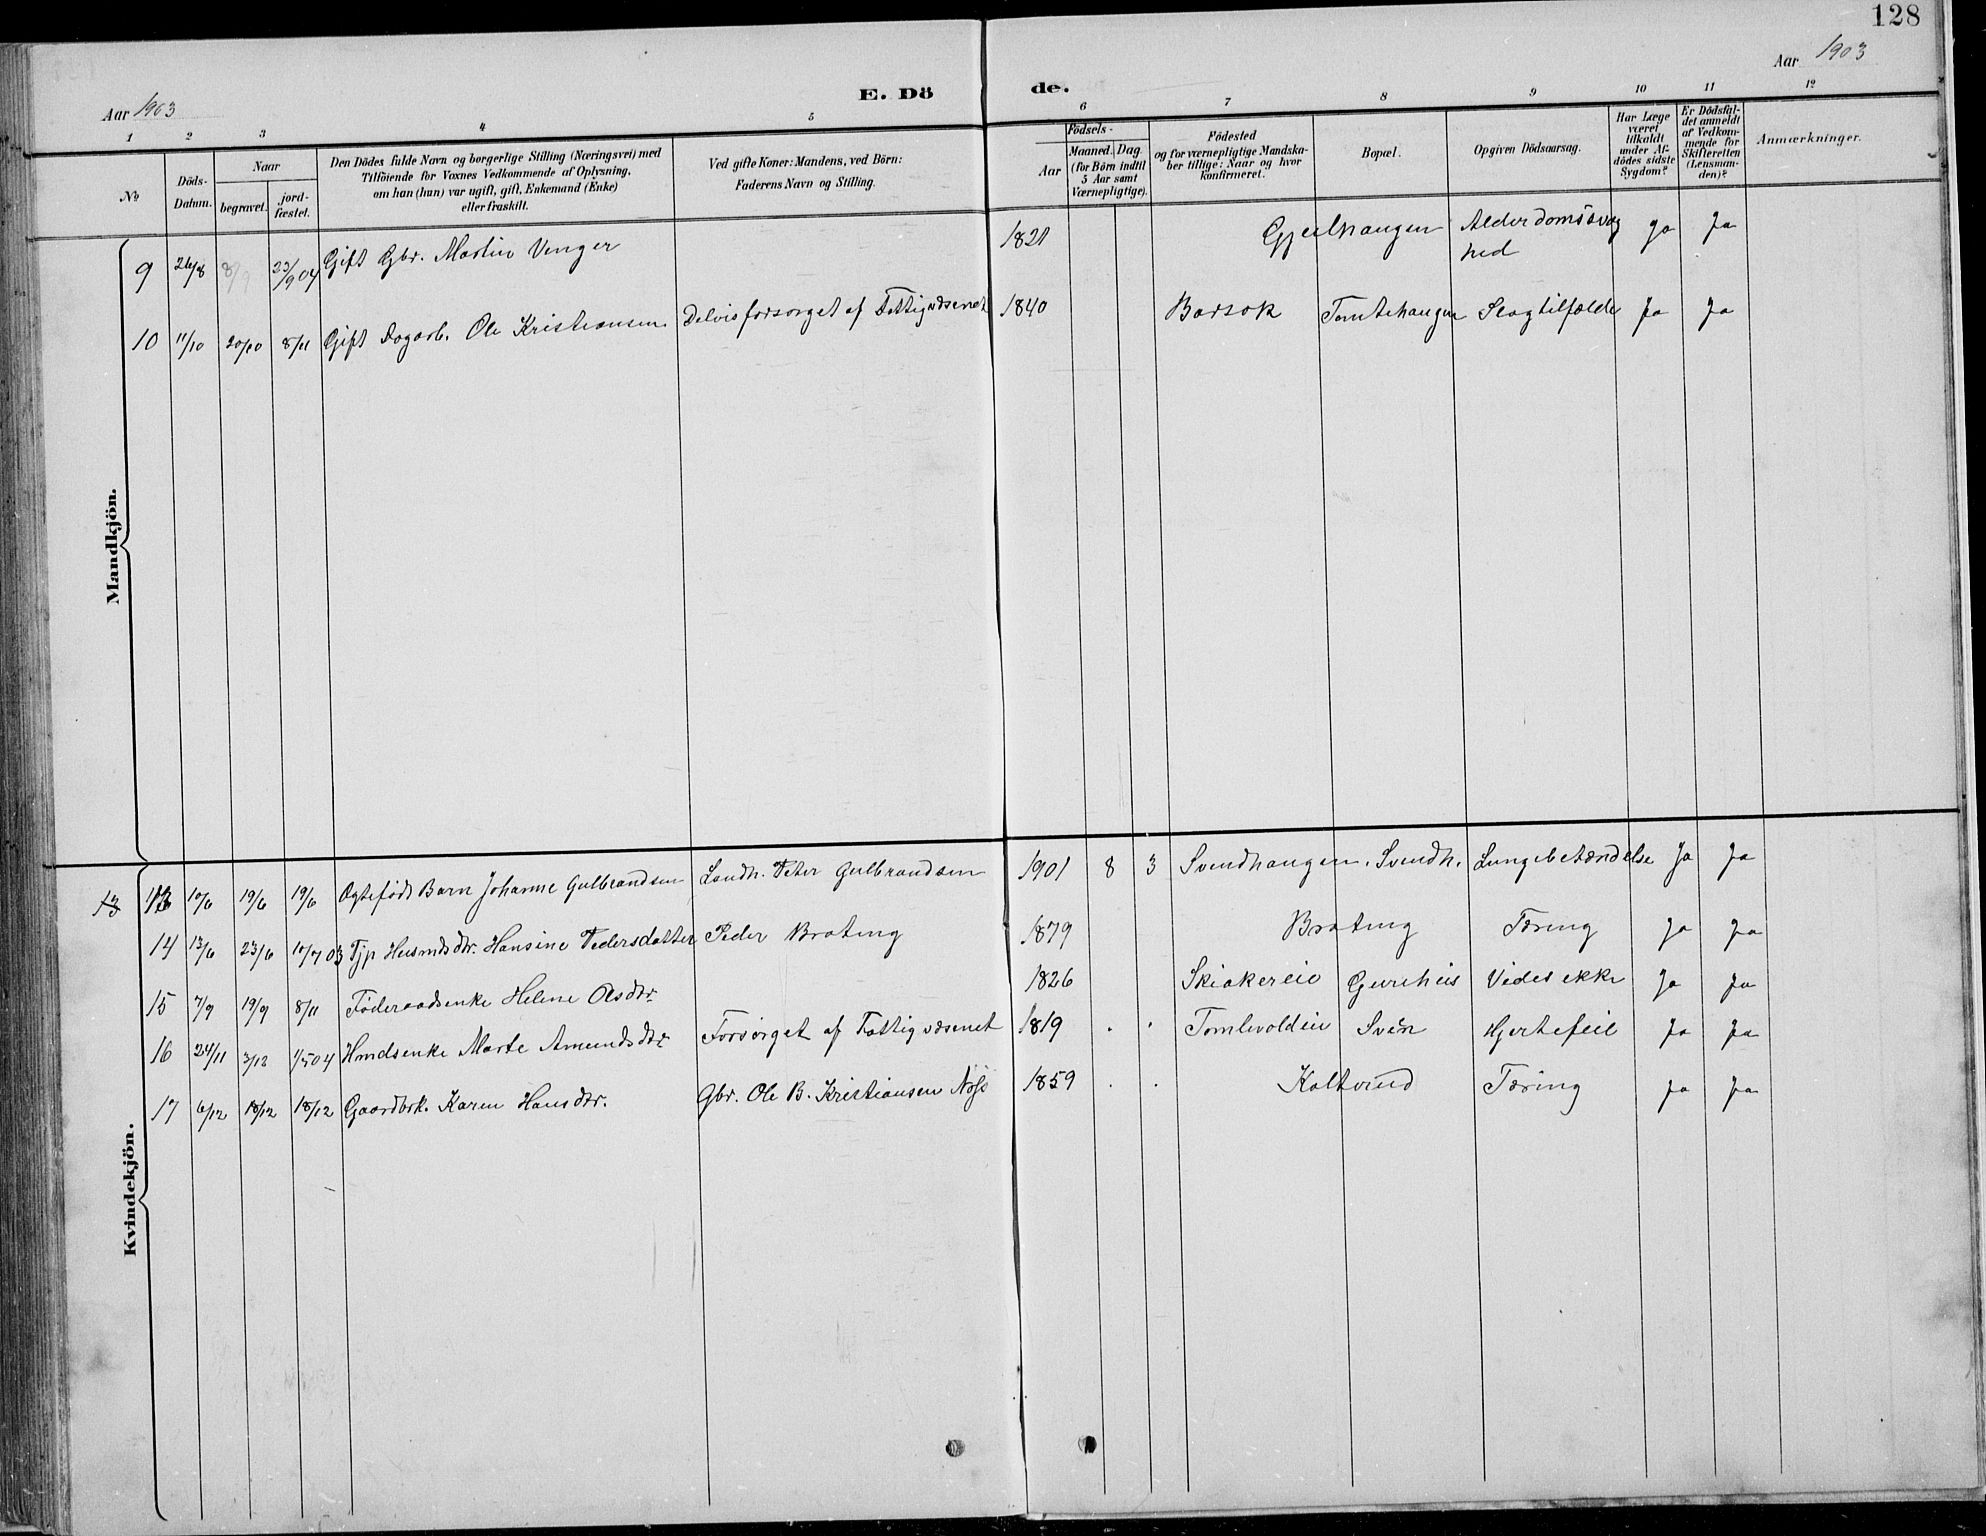 128
Aar 1903
E. Dö de.
Aar 1903
1 2 3 4 5 6 7 8 9 10 11 12
No.
Döds-Datum.
Naar
begravet.
jord-fæstet.
Den Dödes fulde Navn og borgerlige Stilling (Næringsvei) med
Tilföiende for Voxnes Vedkommende af Oplysning,
om han (hun) var ugift, gift, Enkemand (Enke)
eller fraskilt.
Ved gifte Koner: Mandens, ved Börn:
Faderens Navn og Stilling.
Födsels-
Aar
Maaned. Dag.
(for Börn indtil
5 Aar samt
Værnepligtige).
Födested
og for værnepligtige Mandska-
ber tillige: Naar og hvor
konfirmeret.
Bopæl.
Opgiven Dödsaarsag.
Har Læge
været
tilkaldt
under Af-
dödes sidste
Sygdom?
Er Dödsfal-
det anmeldt
af Vedkom-
mende for
Skifteretten
(Lensman-
den)?
Anmærkninger.
Mandkjön.
9 26/8 8/9 23/9 04 Gift Gbr. Martin Venger 1821 Gjeilhaugen Alderdomssvag
hed Ja Ja
10 11/10 20/10 8/11 Gift Dagarb. Ole Kristiansen Delvis forsørget af Fattigvæsenet 1840 Barsok Tomtehaugen Slagtilfælde Ja Ja
Kvindekjön.
13 13 10/6 19/6 19/6 Ægtefødt Barn Johanne Gulbrandsen Landh. Peter Gulbrandsen 1901 8 3 Svendhaugen. Svendh. Lungebetændelse Ja Ja
14 13/6 23/6 10/7 03 Tjp Husmdsdtr. Hansine Pedersdatter Peder Brateng 1879 Brateng Tæring Ja Ja
15 7/9 19/9 8/11 Føderaadsenke Helene Olsdtr. 1826 Skiakereie Vides ikke Ja Ja
16 24/11 3/12 1/5 04 Hmdsenke Marte Amundsdtr. Forsørget af Fattigvæsenet 1819 . . Tomlevoldeie Svén Hjertefeil Ja Ja
17 6/12 18/12 18/12 Gaardbrk. Karen Hansdtr. Gbr. Ole B. Kristiansen 1859 . . Koltvind Tæring Ja Ja